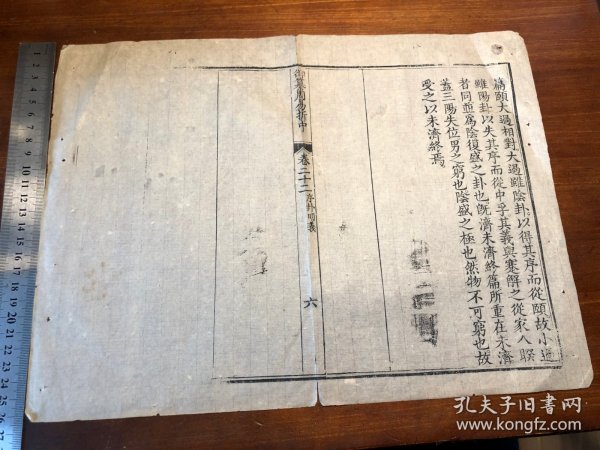 篇頤大過相對大過雖陰卦以得其序而從頤故小過
雖陽卦以失其序而從中孚其義與蹇解之從家人睽
者同並爲陰復盛之卦也旣濟未濟終篇所重在未濟
蓋三陽失位男之窮也陰盛之極也然物不可窮也故
受之以未濟終焉
御纂周易折中
卷二十二
序卦明義
六
孔夫子旧书网
www.kongfz.com